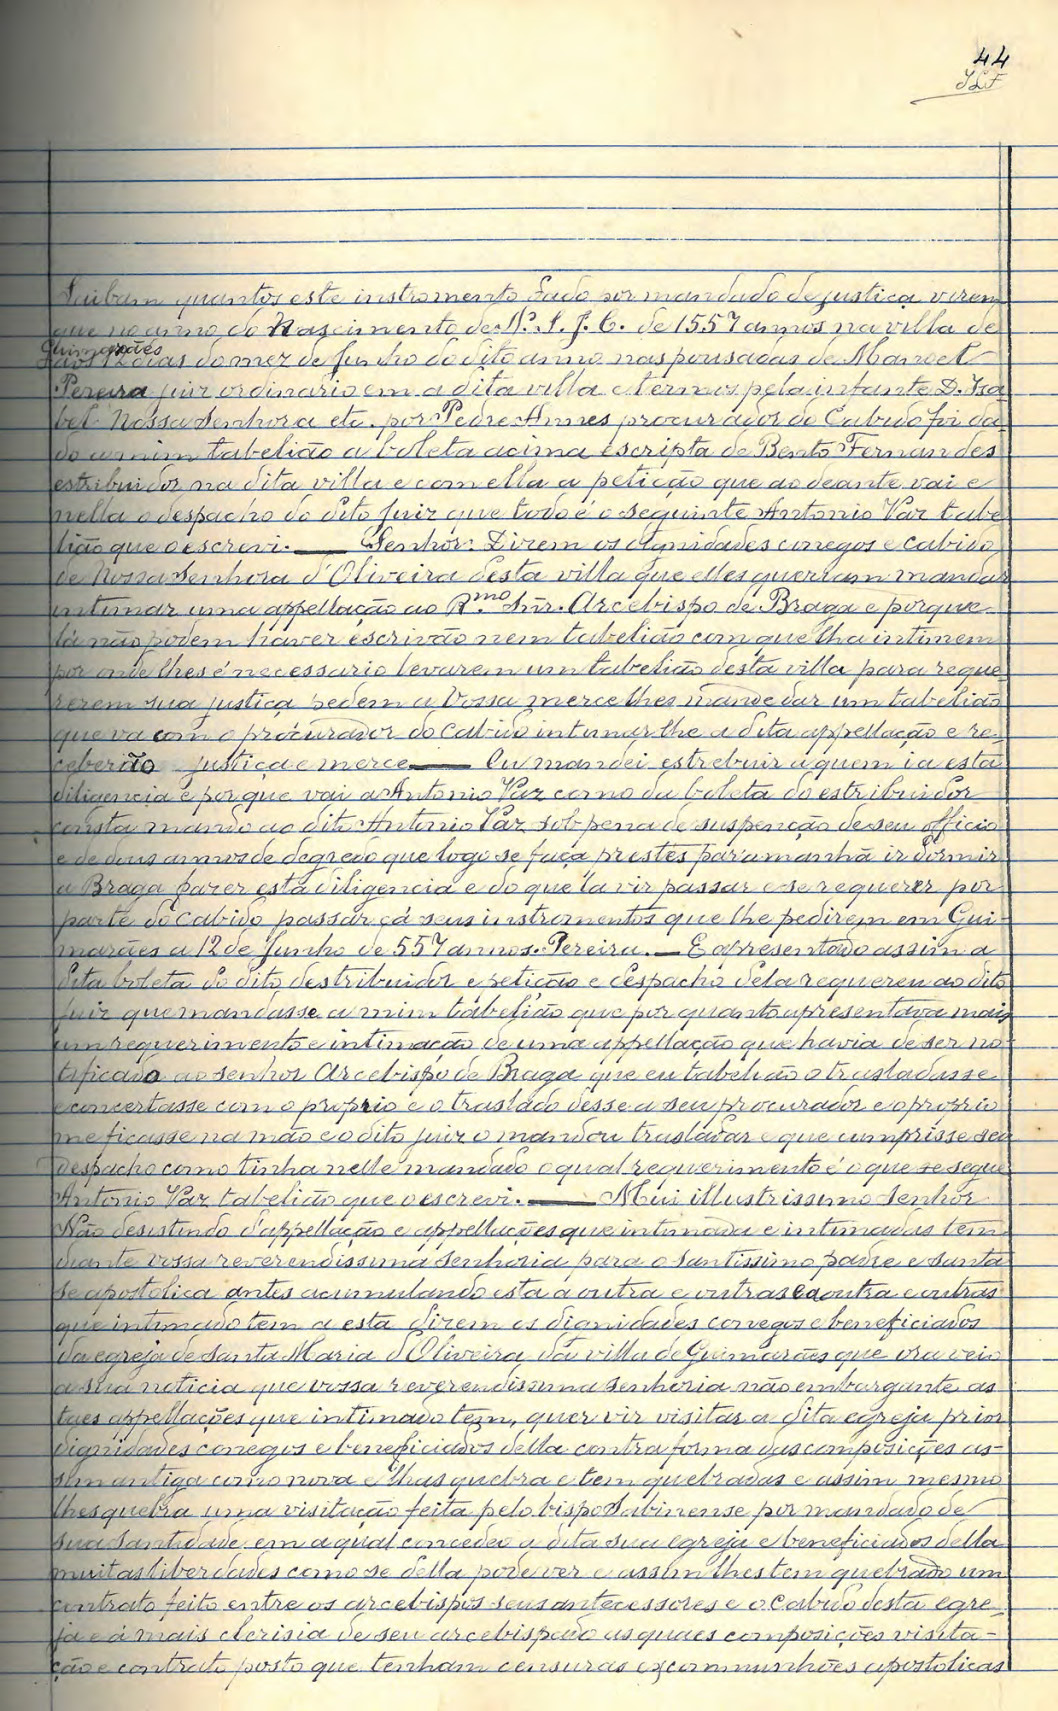 44
JLF
Saibam quantos este instromento dado por mandado de justiça virem
que no anno do Nascimento de N. S. J. C. de 1557 annos na villa de
Guimarães
aos 12 dias do mez de Junho do dito anno nas pousadas de Manoel
Pereira juiz ordinario em a dita villa e termos pela infante D. Isa
bel Nossa Senhora etc. por Pedre Annes procurador do Cabido foi da
do a mim tabelião a boleta acima escripta de Bento Fernandes
estribuidor na dita villa e com ella a petição que ao deante vai e
nella o despacho do dito juiz que todo é o seguinte Antonio Vaz tabe
lião que o escrevi. — Senhor: Dizem os dignidades conegos e cabido
de Nossa Senhora d'Oliveira desta villa que elles queriam mandar
intimar uma appellação ao R.mo Snr. Arcebispo de Braga e porque
lá não podem haver escrivão nem tabelião com que lha intimem
por onde lhes é necessario levarem um tabelião desta villa para reque
rerem sua justiça pedem a Vossa merce lhes mande dar um tabelião
que va com o procurador do Cabido intimar-lhe a dita appellação e re-
ceberão justiça e merce — Eu mandei estrebuir a quem ia esta
diligencia e porque vai a Antonio Vaz como da boleta do estribuidor
consta mando ao dito Antonio Vaz sob pena de suspenção de seu officio
e de dous annos de degredo que logo se faça prestes para manhã ir dormir
a Braga fazer esta diligencia e do que lá vir passar e se requerer por
parte do Cabido passar cá seus instromentos que lhe pedirem em Gui-
marães a 12 de Junho de 557 annos. Pereira. — E apresentado assim a
dita boleta do dito destribuidor e petição e despacho dela requereu ao dito
juiz que mandasse a mim tabelião que por quanto apresentava mais
um requerimento e intimação de uma appellação que havia de ser no-
tificado ao senhor Arcebispo de Braga que eu tabelião o trasladasse
e concertasse com o proprio e o traslado desse a seu procurador e o proprio
me ficasse na mão e o dito juiz o mandou trasladar e que cumprisse seu
despacho como tinha nelle mandado o qual requerimento é o que se segue
Antonio Vaz tabelião que o escrevi. — Mui illustrissimo Senhor
Não desistindo d'appellação e appellações que intimada e intimadas tem
diante vossa reverendissima senhoria para o santissimo padre e santa
se apostolica antes acumulando esta a outra e outras e a outra e outras
que intimado tem a esta dizem os dignidades conegos e beneficiados
da egreja de Santa Maria d'Oliveira da villa de Guimarães que ora veio
a sua noticia que vossa reverendissima senhoria não embargante as
taes appellações que intimado tem, quer vir visitar a dita egreja prior
dignidades conegos e beneficiados della contra forma das composições as-
sim antiga como nova e lhas quebra e tem quebradas e assim mesmo
lhes quebra uma visitação feita pelo bispo Sabinense por mandado de
sua santidade em a qual concedeu a dita sua egreja e beneficiados della
muitas liberdades como se della pode ver e assim lhes tem quebrado um
contrato feito entre os arcebispos seus antecessores e o Cabido desta egre-
ja e á mais clerisia de seu arcebispado as quaes composições visita-
ção e contrato posto que tenham censuras excommunhões apostolicas